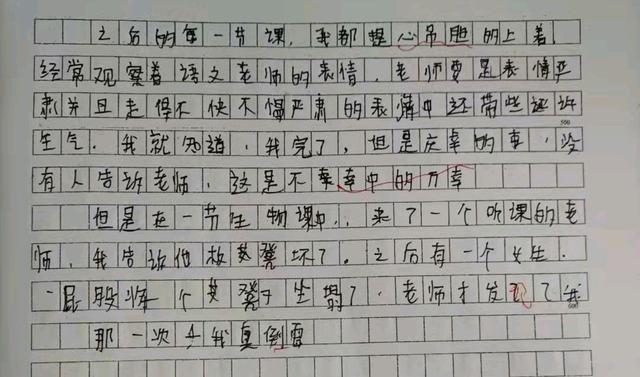 之后的每一节课，我都提心吊胆的上着，
经常观察着语文老师的表情，老师要是表情严
肃并且走得不快不慢严肃的表情中还带些
生气，我就知道，我完了，但是庆幸的事，没
有人告诉老师，这是不幸中的万幸
但是在一节生物课中，来了一个听课的老
师，我告诉他板凳坏了。之后有一个女生，
一屁股将个凳子坐塌了，老师才发现了我
那一次我真倒霉